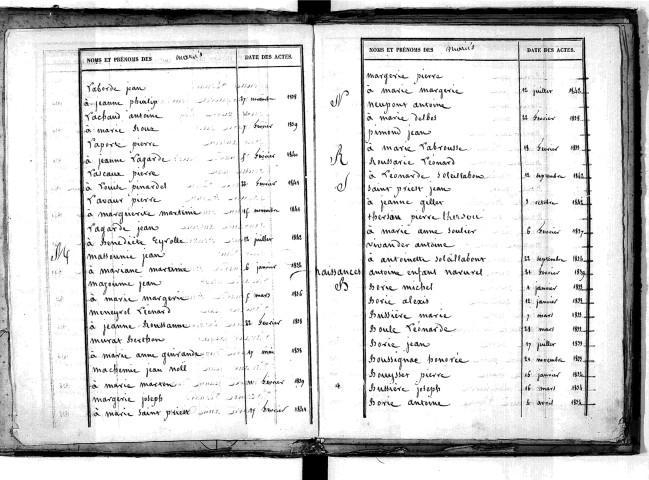 NOMS ET PRÉNOMS DES mariés DATE DES ACTES.
Laborde jean
à jeanne phialip 27 novembre 1838
Lachaud antoine
à marie Roux 7 février 1839
Laporte pierre
à jeanne Lagarde 5 février 1840
Lascaux pierre
à Louise pinardel 22 février 1841
Lavaur pierre
à marguerite martinie 15 novembre 1841
Lagarde jean
à Bénédicte Eyrolle 12 juillet 1842
M
massounie jean
à mariane martinie 6 janvier 1836
mazoume jean
à marie margerie 5 mars 1836
meneyrol Léonard
à jeanne Roussanne 22 février 1838
murat Berthon
à marie anne geneande 17 mai 1838
machemie jean noël
à marie marcou février 1839
margerie joseph
à marie saint priest 17 février 1841
NOMS ET PRÉNOMS DES mariés DATE DES ACTES.
margerie pierre
à marie margerie 12 juillet 1842
N
neupont antoine
à marie delbos 22 février 1838
pimond jean
à marie Labrousse 19 février 1831
R
Roussarie Léonard
à Léonarde soleillabou 12 septembre 1842
S
saint priest jean
à jeanne gillet 3 octobre 1842
thersou pierre thersou
à marie anne soulier 6 février 1837
vivandet antoine
à antoinette soleillabout 22 septembre 1836
naissances antoine enfant naturel 21 février 1839
B
Borie michel 4 janvier 1833
Borie alexis 12 janvier 1833
Bussière marie 7 mars 1833
Boule Léonarde 28 mars 1833
Borie jean 17 juillet 1833
Boussignac honorée 20 novembre 1833
Boueysset pierre 16 janvier 1834
Bussière joseph 16 mars 1834
Borie antoine 6 avril 1834